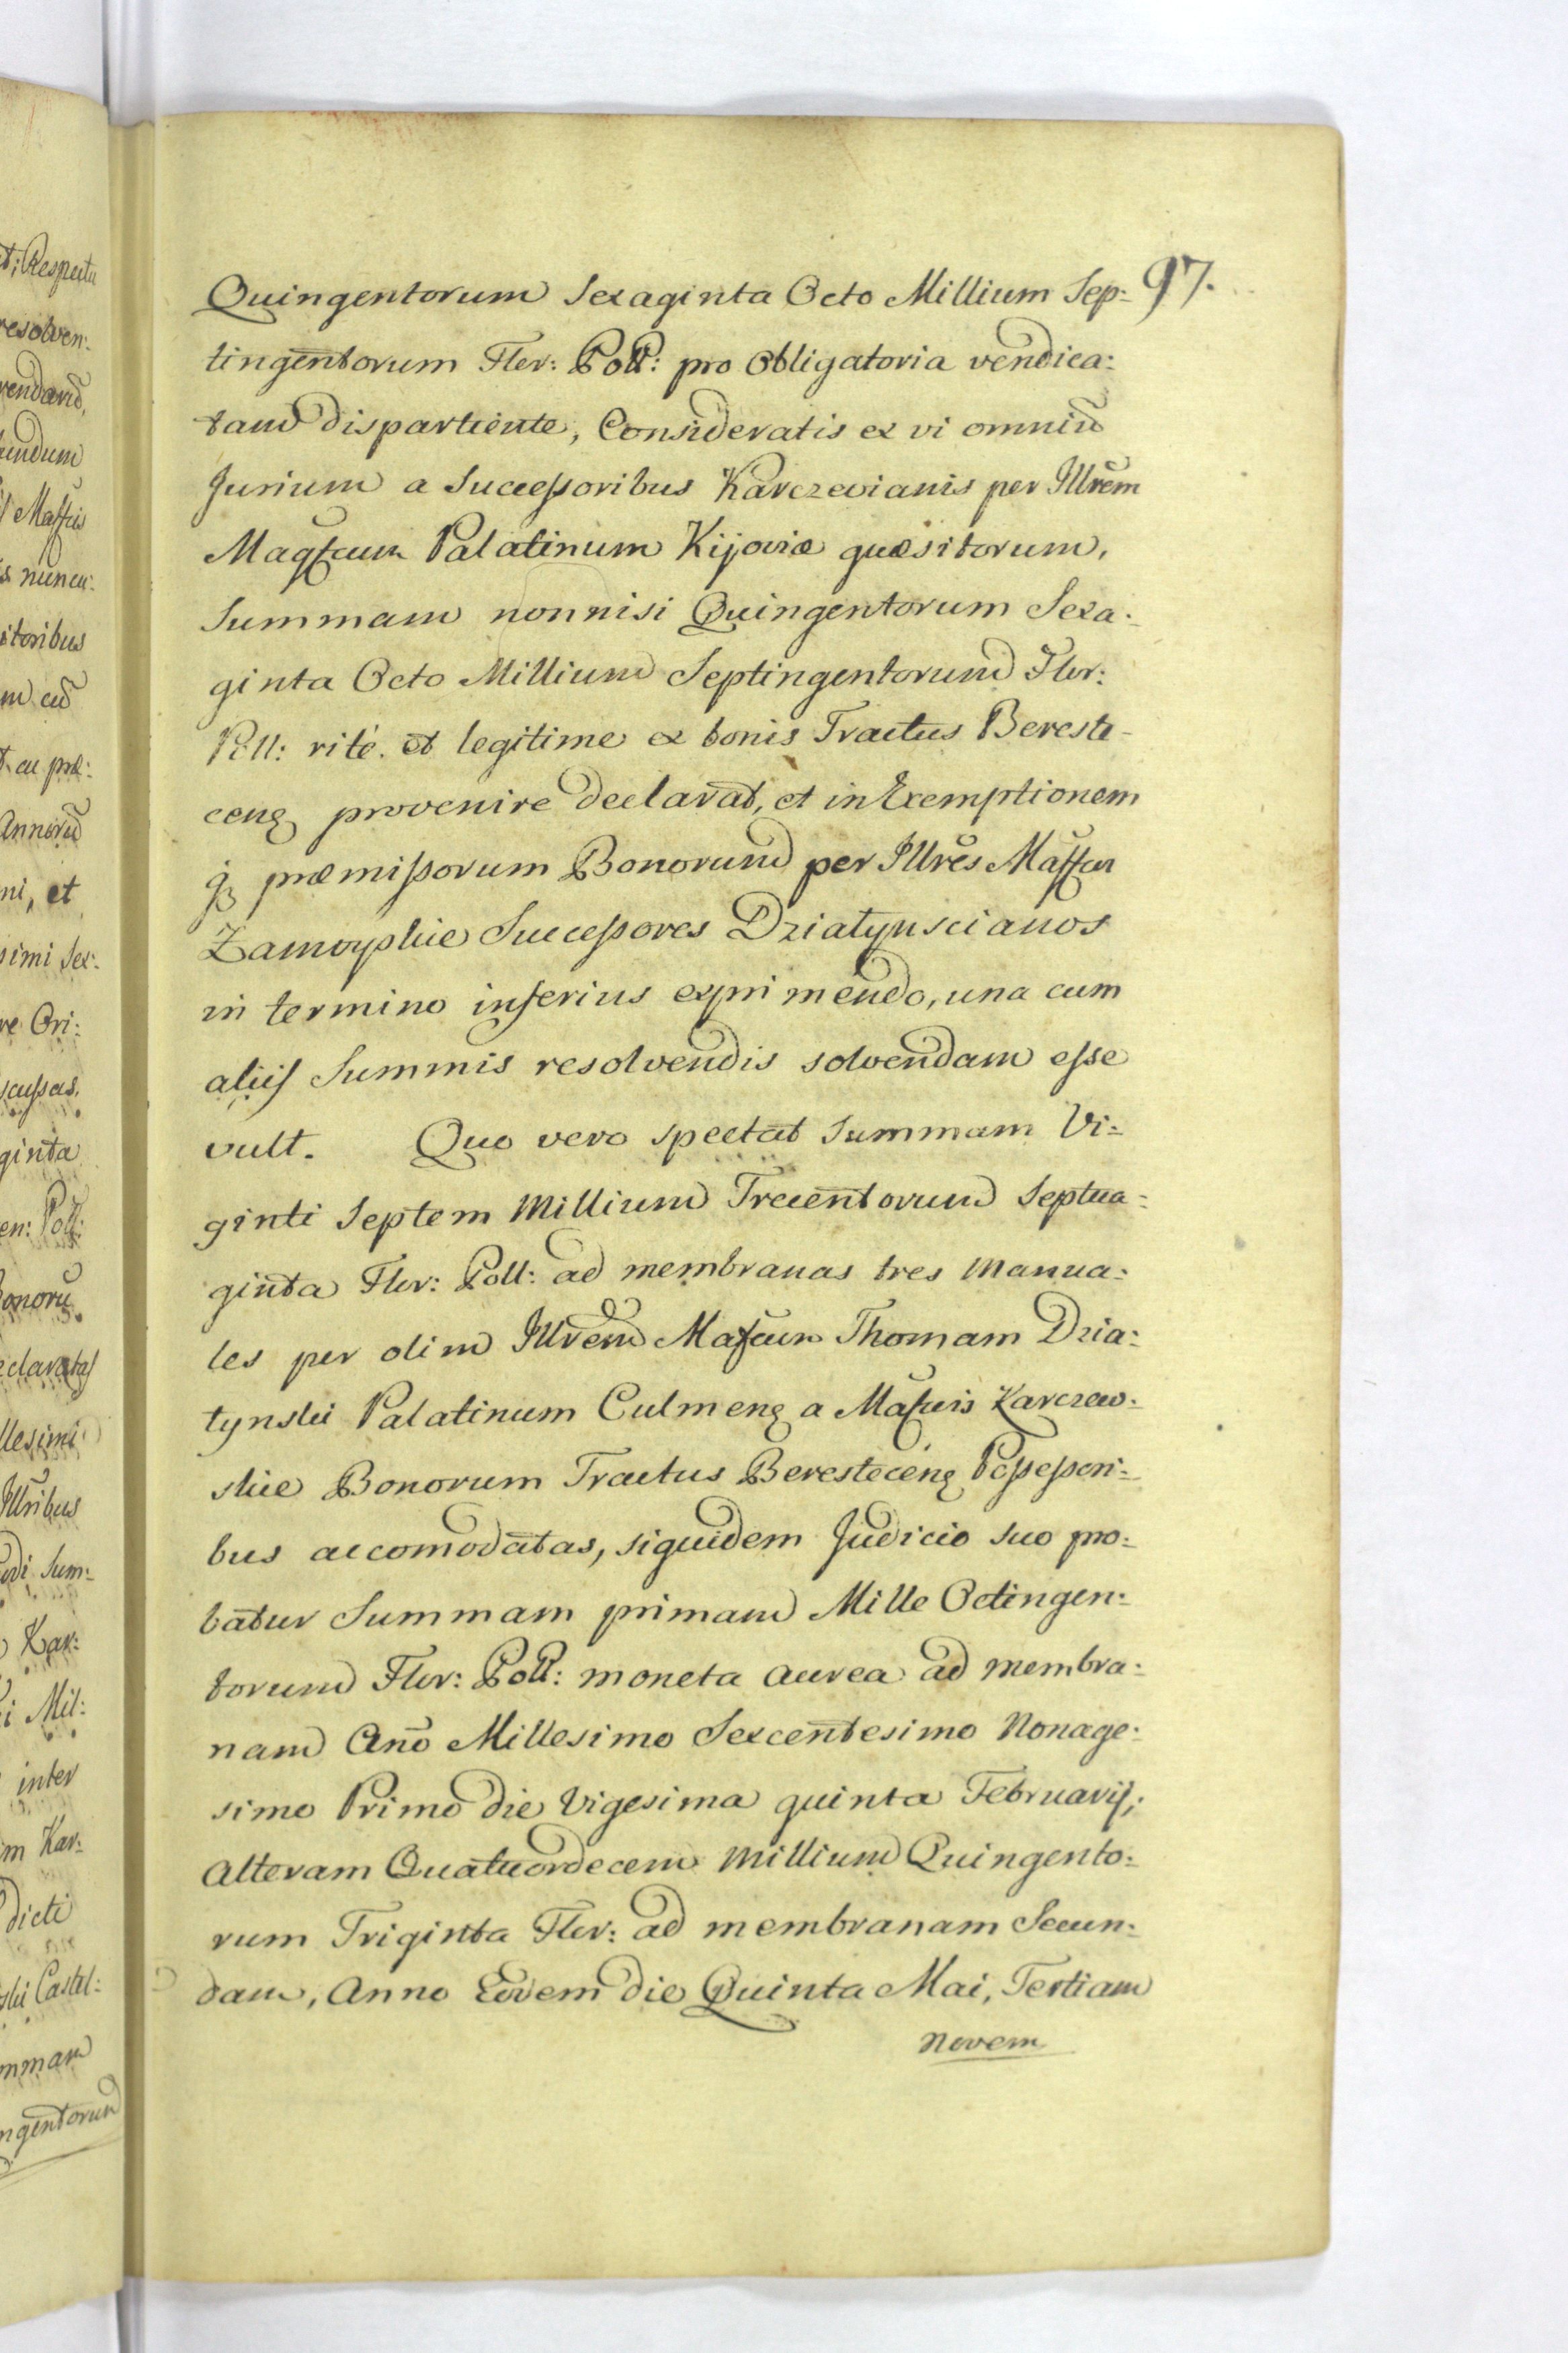 97.
Quingentorum Sexaginta Octo Millium Sep:
tingentorum Flor: Poll: pro Obligatoria vendica:
tam dispartiente, Consideratis ex vi omniū
Jurium a Successoribus Karczevianis per Illrēm
Magfcum Palatinum Kijoviæ quæsitorum,
Summam nonnisi Quingentorum Sexa:
ginta Octo Millium Septingentorum Flor:
Poll: rité et legitime ex bonis Tractus Bereste-
ceng provenire declarat, et in Exemptionem
q̨ præmissorum Bonorum per Illrēs Maffcos
Zamoyskie Successores Dziatynscianos
in termino inferius exprimendo, una cum
aliis Summis resolvendis solvendam esse
vult. Quo vero spectat Summam Vi:
ginti Septem Millium Trecentorum Septua:
ginta Flor: Poll: ad membranas tres Manua:
les per olim Illrem Mafcum Thomam Dzia:
tynski Palatinum Culmeng a Mafcis Karczew:
skie Bonorum Tractus Beresteceng Possessori:
bus accomodatas, siquidem Judicio suo pro:
batur Summam primam Mille Octingen:
torum Flor: Poll: moneta aurea ad membra:
nam Anō Millesimo Sexcentesimo Nonage:
simo Primo die Vigesima quinta Februarij;
Alteram Quatuordecem Millium Quingento:
rum Triginta Flor: ad membranam Secun:
dam, Anno Eodem die Quinta Mai, Tertiam
Novem